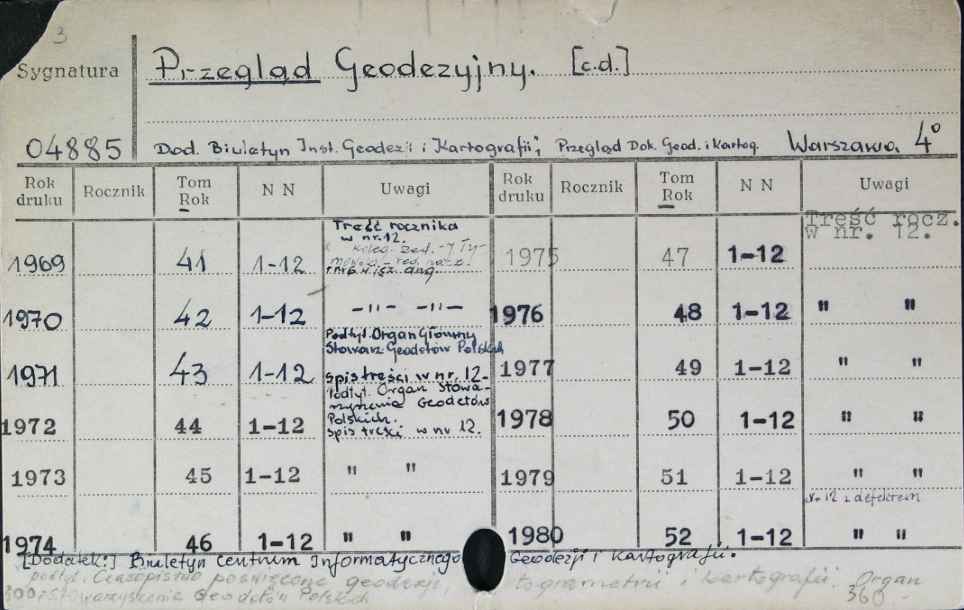 3
Sygnatura
Przegląd Geodezyjny. [c.d.]
04885
Dod. Biuletyn Inst. Geodezji i Kartografii; Przegląd Dok. Geod. i Kartog. Warszawa 4°
Rok druku Rocznik Tom Rok N N Uwagi Rok druku Rocznik Tom Rok N N Uwagi
1969 41 1-12 Treść rocznika
w nr. 12.
1970 42 1-12 -"- -"-
1971 43 1-12 Podtyt. Organ Główny
Stowarz Geodetów Polskich
spis treści w nr. 12-
1972 44 1-12 Podtyt. Organ Stowa-
rzyszenia Geodetów
Polskich.
spis treści w nr 12.
1973 45 1-12 " "
1974 46 1-12 " "
1975 47 1-12 Treść rocz.
w nr. 12.
1976 48 1-12 " "
1977 49 1-12 " "
1978 50 1-12 " "
1979 51 1-12 " "
Nr 12 z defektem
1980 52 1-12 " "
[Dodatek:] Biuletyn Centrum Informatycznego Geodezji i Kartografii.
podtyt. Czasopismo poświęcone geodezji, togrametrii i kartografii. Organ
Stowarzyszenia Geodetów Polskich
360